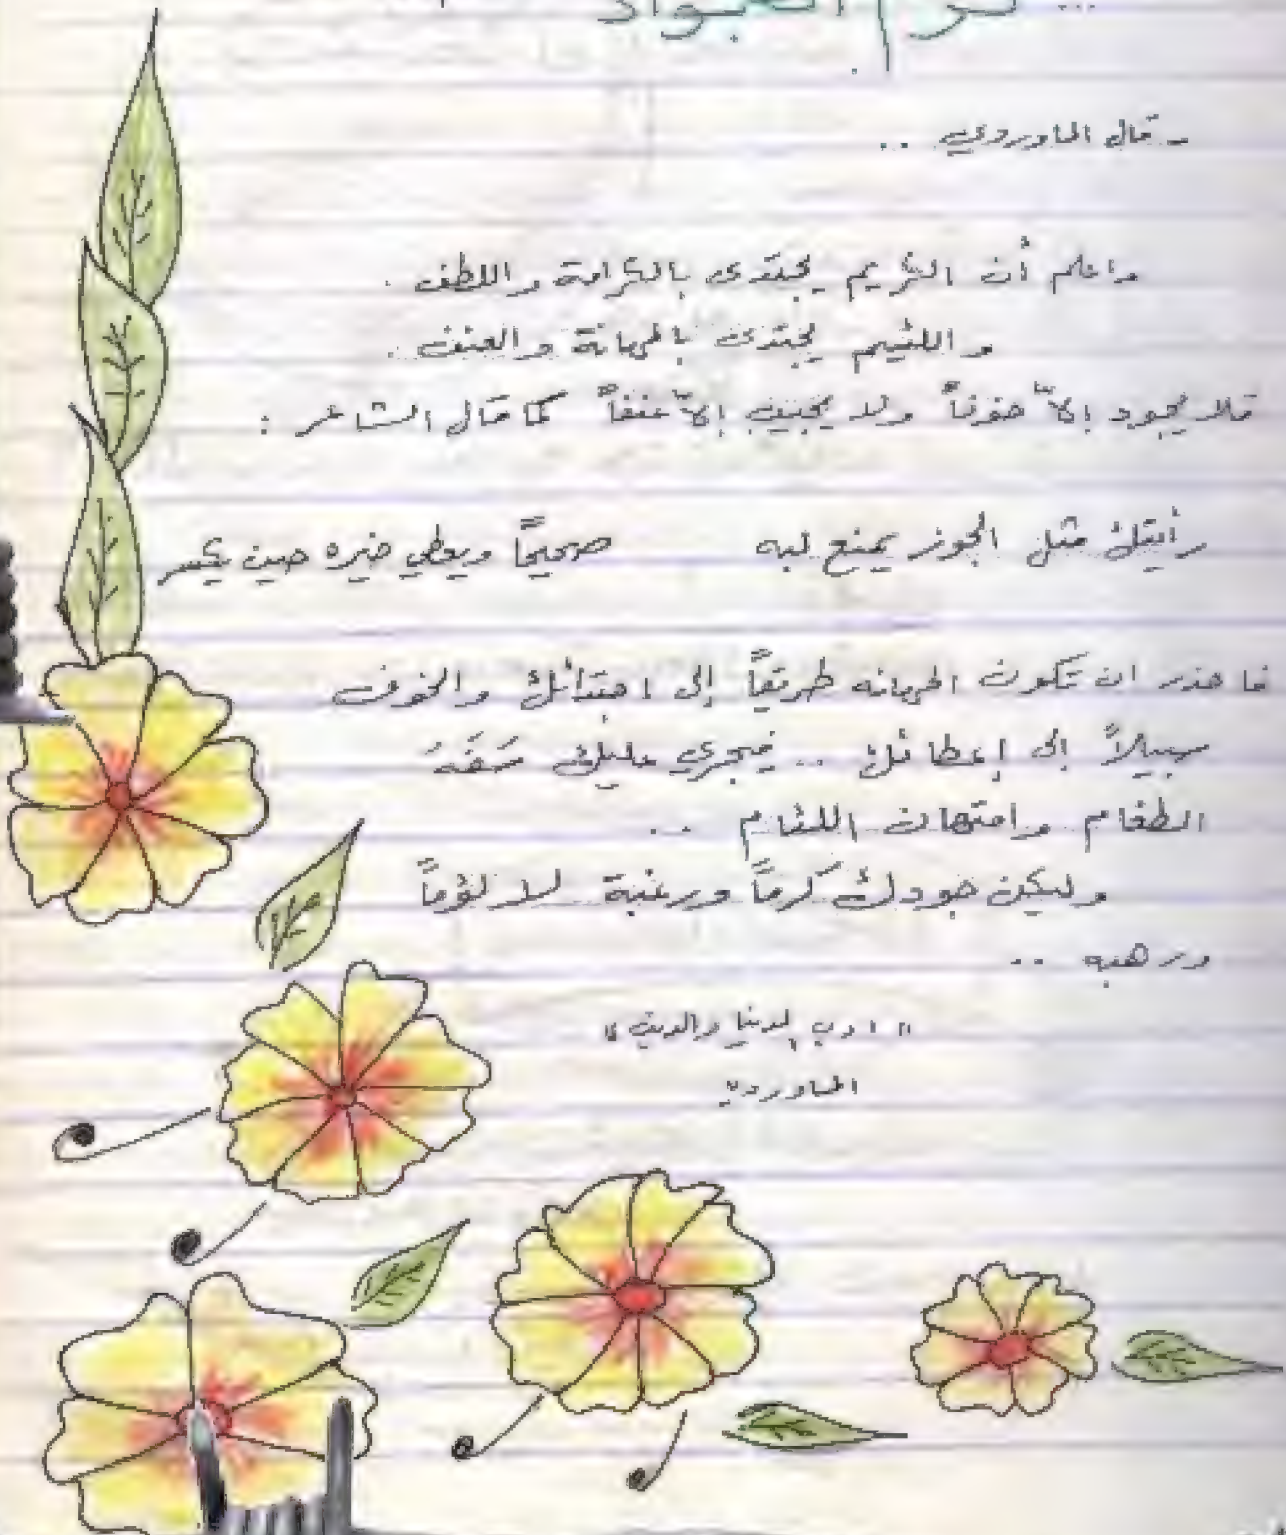 ... كرم الجواد
- قال الماوردي ..
واعلم أن الكريم يجتدى بالكرامة واللطف .
واللئيم يجتدى بالمهانة والعنف .
فلا يجود إلاّ خوفاً ولا يجيب إلاّ عنفاً كما قال الشاعر :
رأيتك مثل الجوز يمنع لبه صحيحاً ويعطي خيره حين يكسر
فاحذر ان تكون المهانه طريقاً إلى اجتدائك والخوف
سبيلاً إلى إعطائك .. فيجري عليك سَفَهُ
الطغام وامتهان اللئام ..
وليكن جودك كرماً ورغبة لا لؤماً
ورهبه ..
" ادب الدنيا والدين "
الماوردي